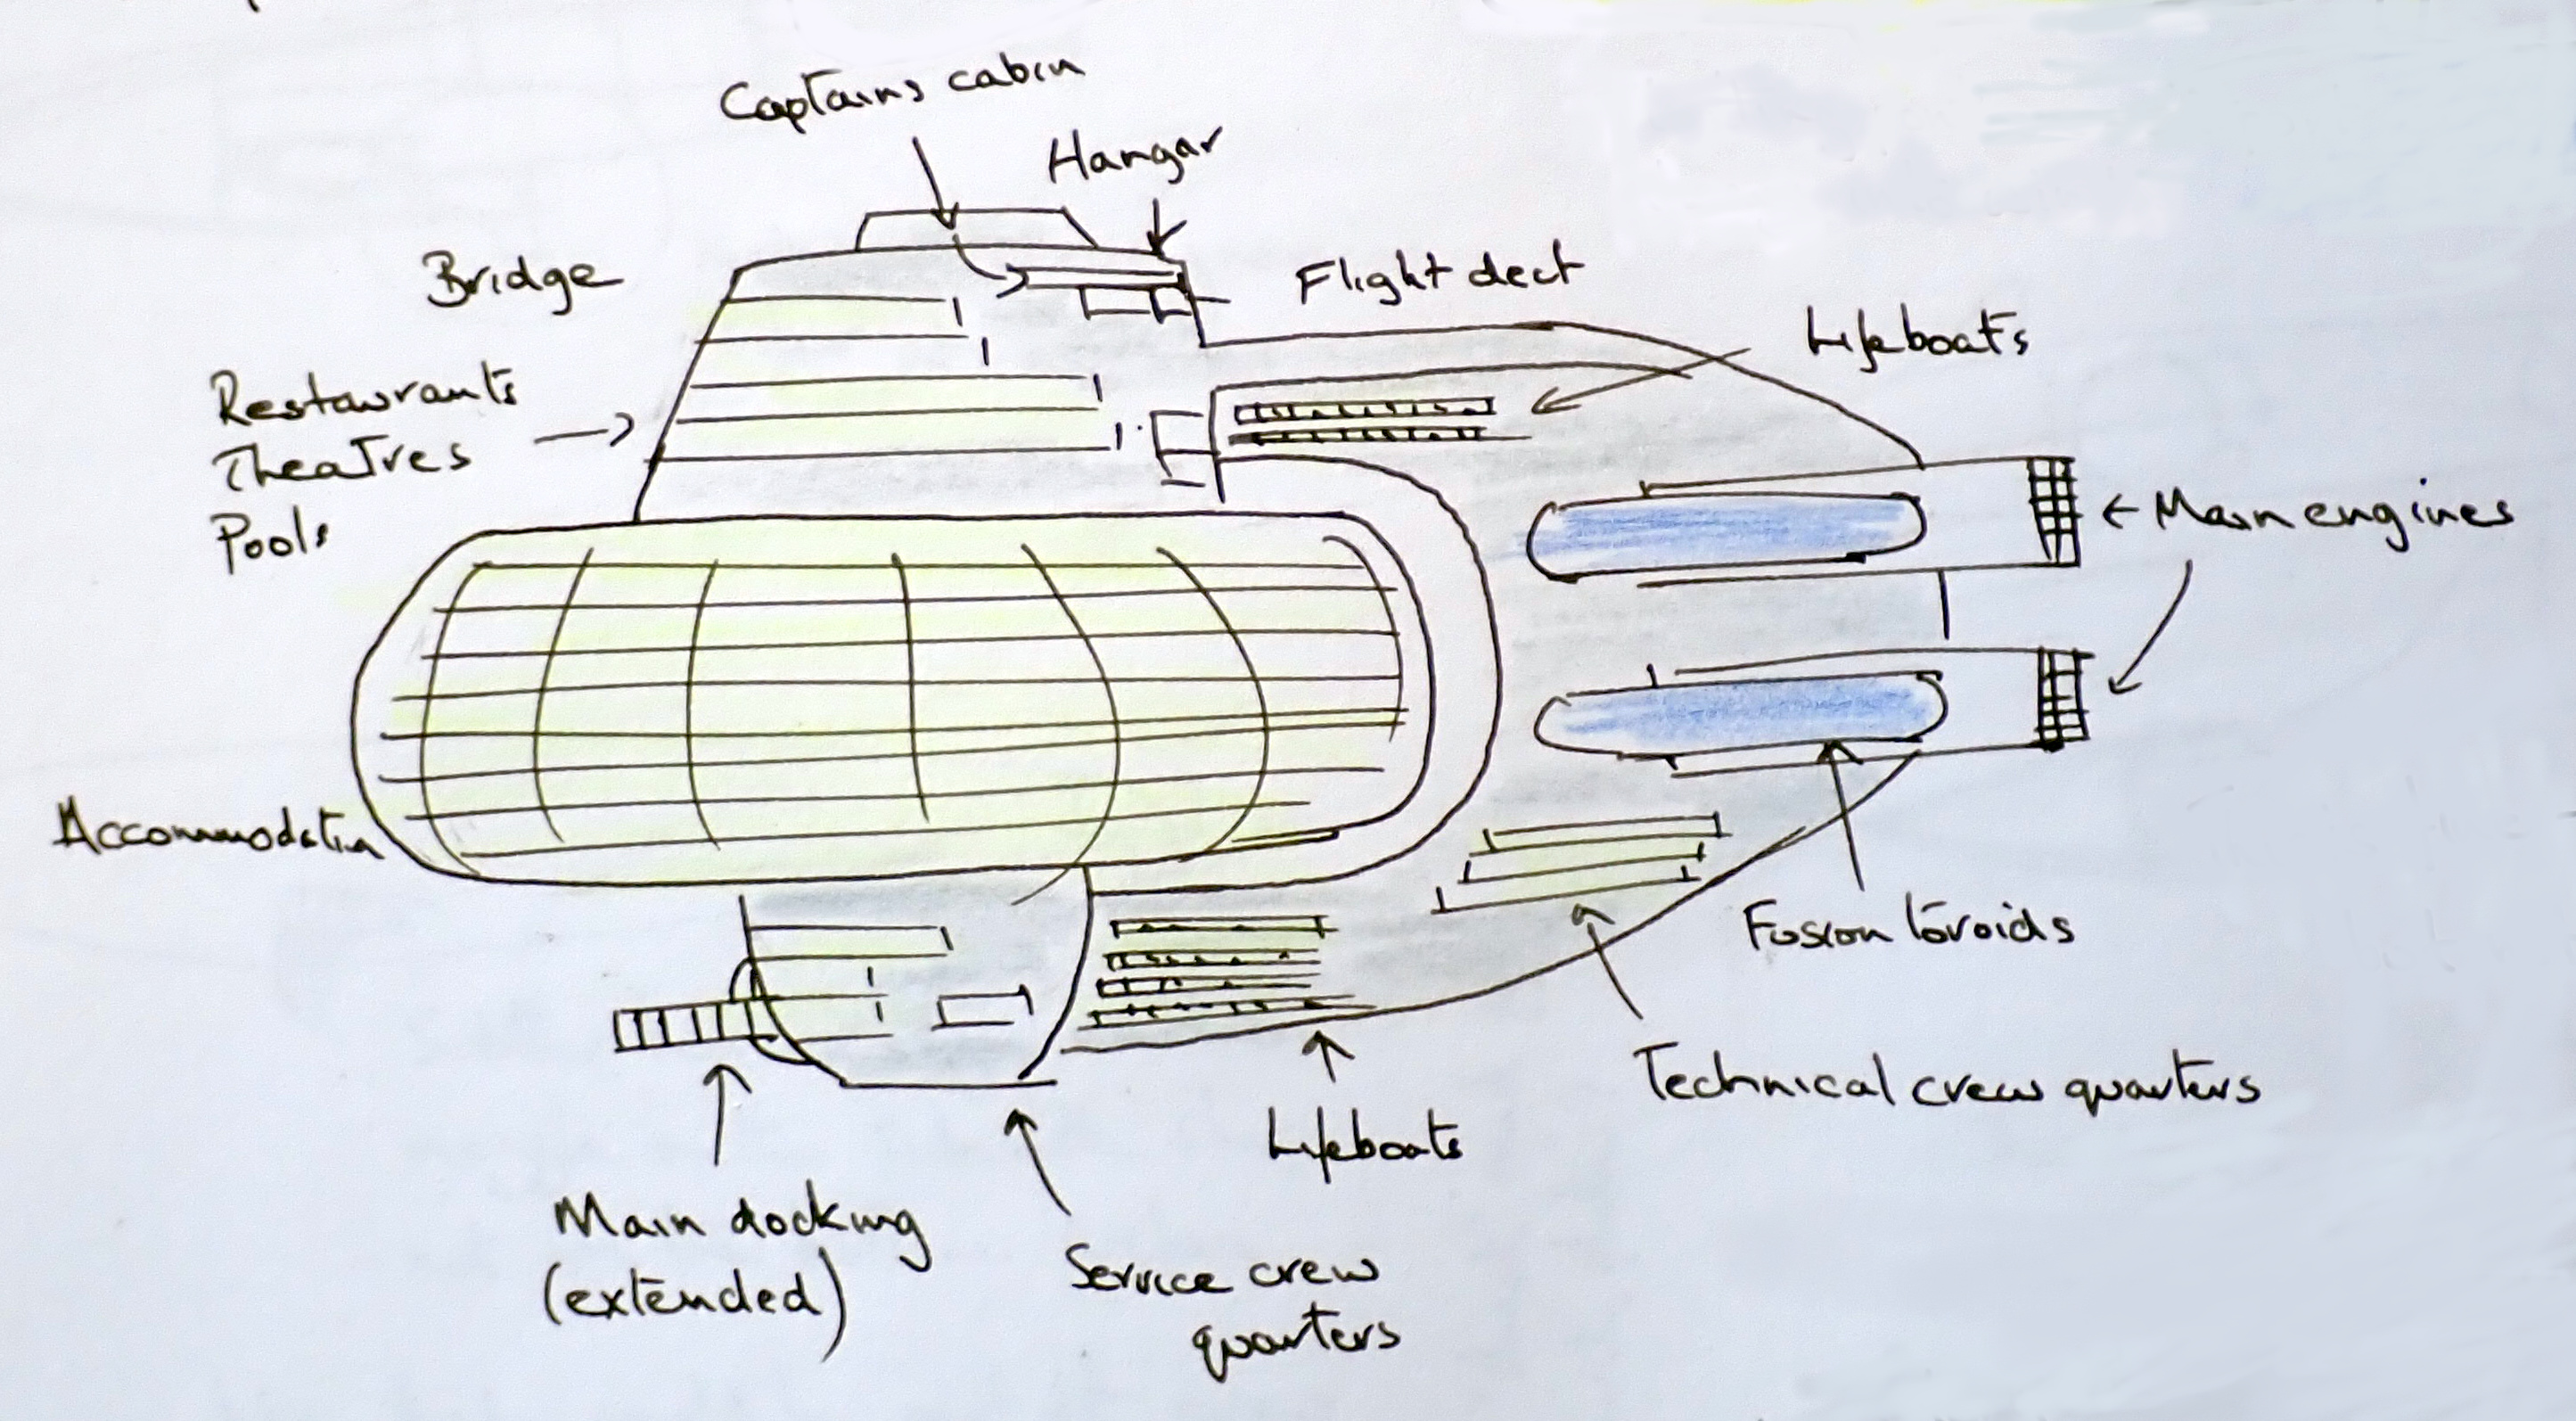 Captains cabin
Hangar
Bridge
Flight dect
Lifeboats
Restaurants
Theatres
Pools
Main engines
Accommodation
Fusion toroids
Technical crew quarters
Lifeboats
Main docking
(extended)
Service crew
quarters